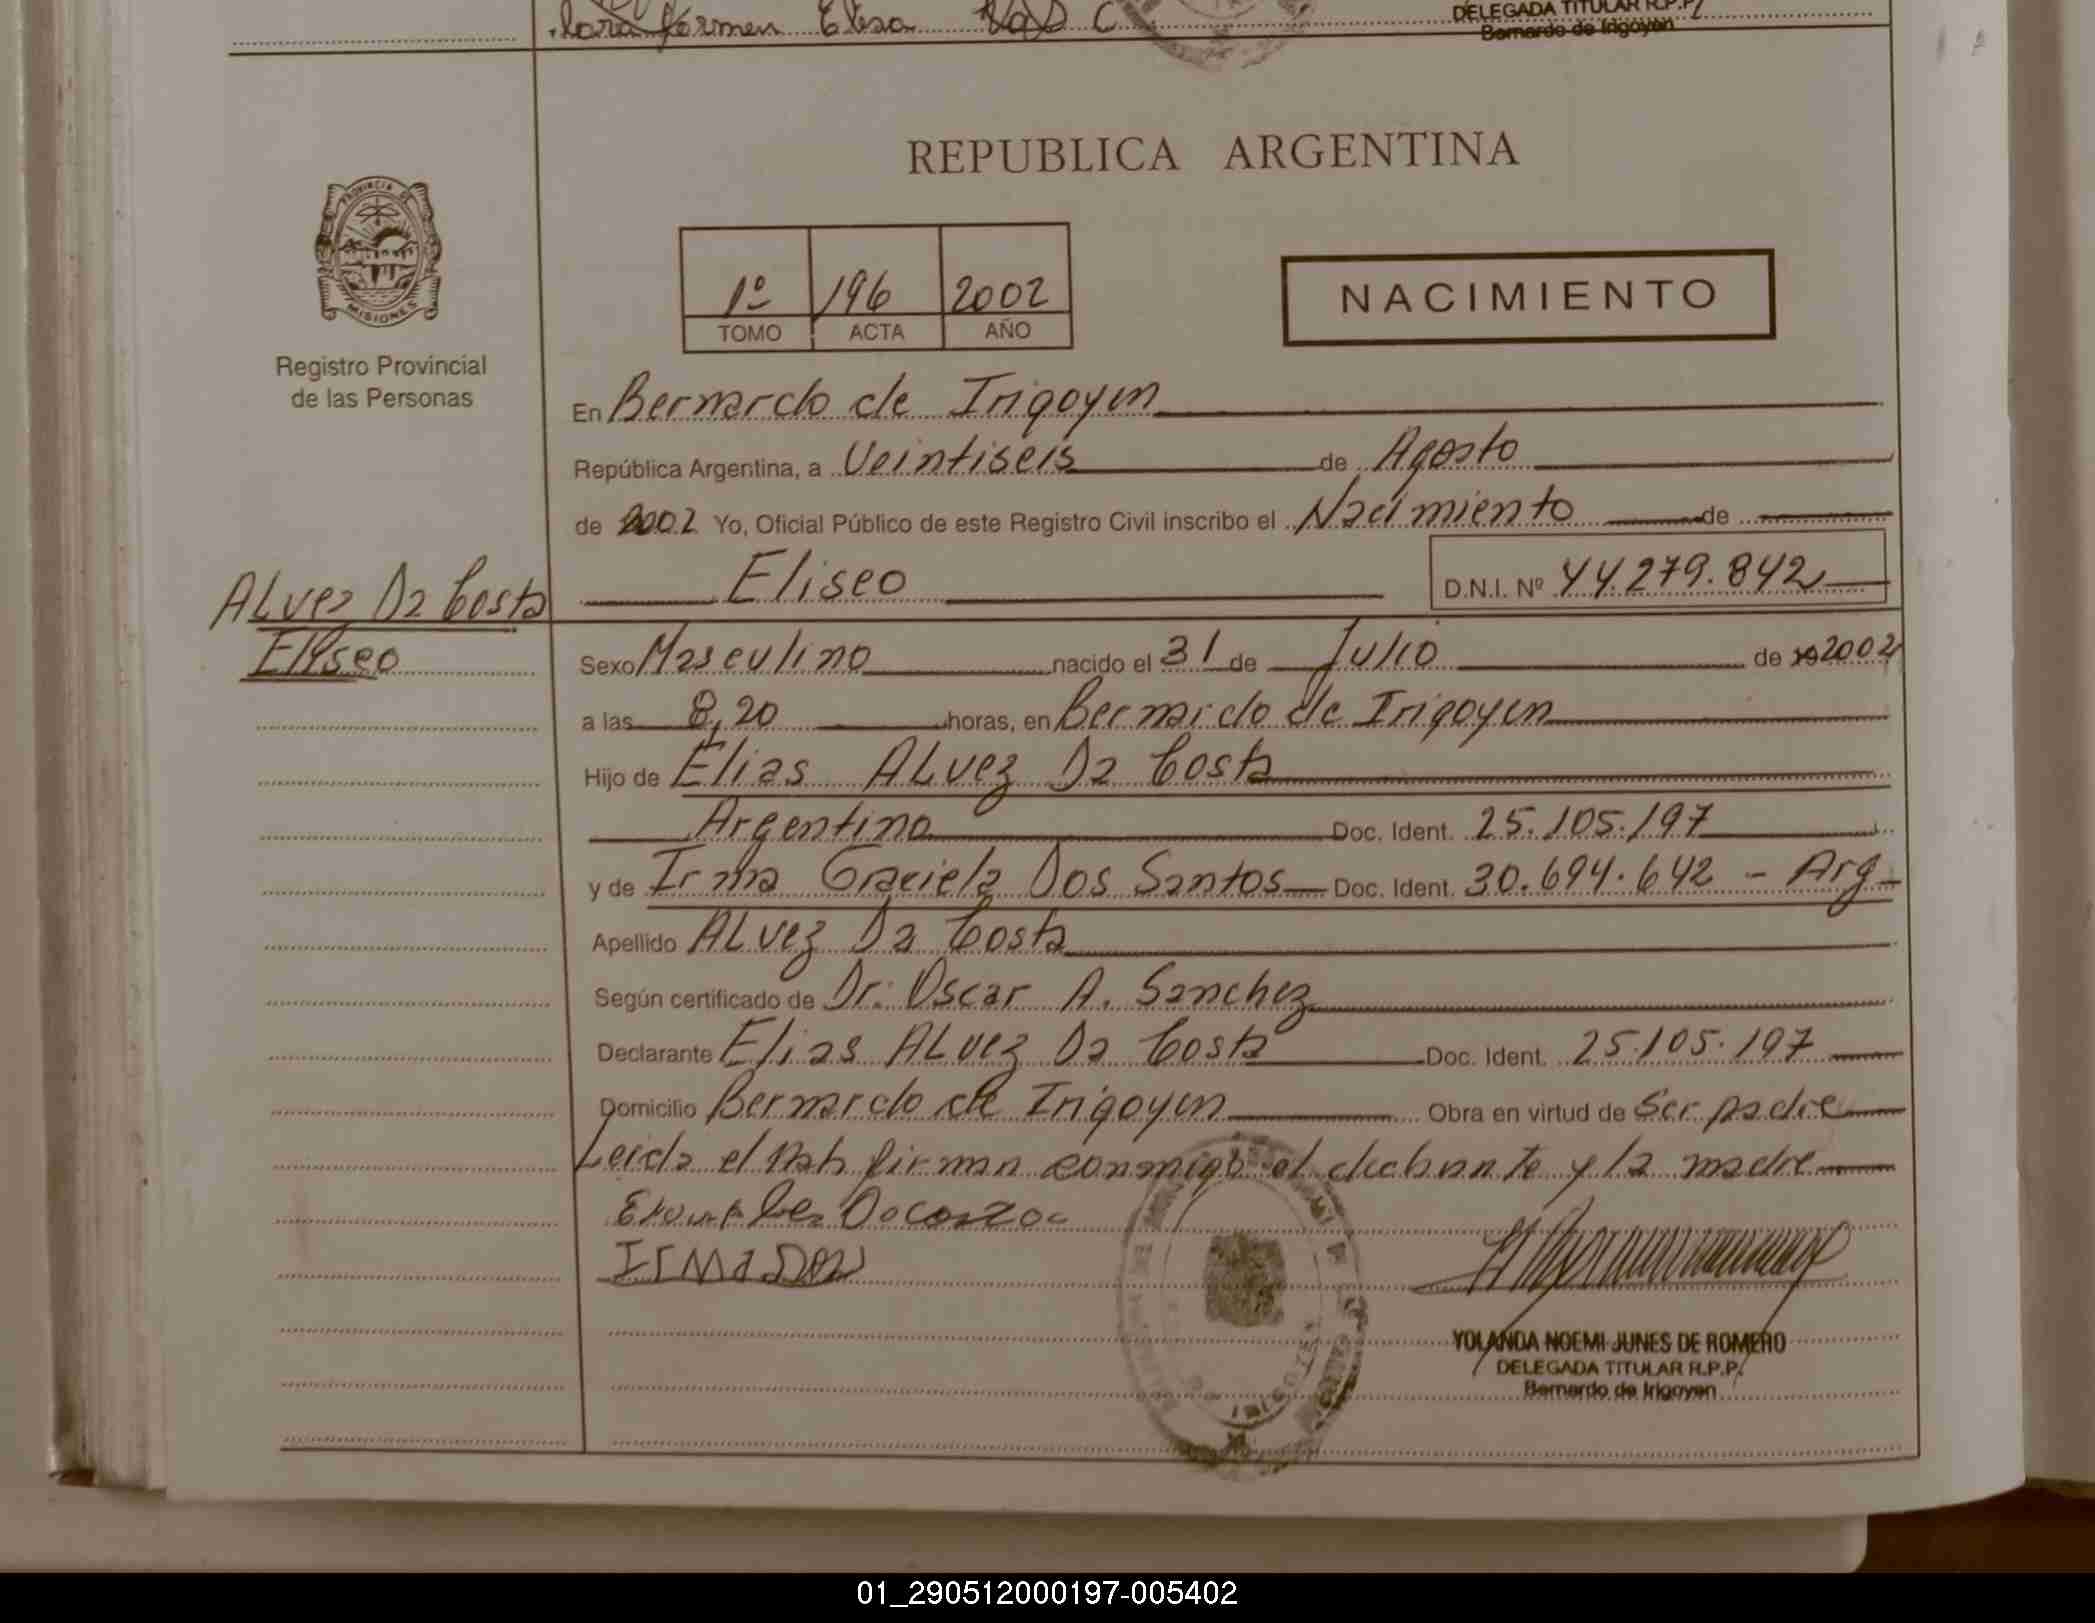 DELEGADA TITULAR R.P.P.
Bernardo de Irigoyen
REPUBLICA ARGENTINA
PROVINCIA DE
MISIONES
Registro Provincial
de las Personas
1º 196 2002
TOMO ACTA AÑO
NACIMIENTO
En Bernardo de Irigoyen
República Argentina, a Veintiseis de Agosto
de 2002 Yo, Oficial Público de este Registro Civil inscribo el Nacimiento de
Eliseo D.N.I. Nº 44.279.842
ALvez Da Costa
Eliseo
Sexo Masculino nacido el 31 de Julio de 19 2002
a las 8,20 horas, en Bernardo de Irigoyen
Hijo de Elias ALvez Da Costa
Argentino Doc. Ident. 25.105.197
y de Irma Graciela Dos Santos Doc. Ident. 30.694.642 - Arg
Apellido ALvez Da Costa
Según certificado de Dr. Oscar A. Sanchez
Declarante Elias ALvez Da Costa Doc. Ident. 25.105.197
Domicilio Bernardo de Irigoyen Obra en virtud de Ser padre
Leida el firman conmigo el y la madre
YOLANDA NOEMI JUNES DE ROMERO
DELEGADA TITULAR R.P.P.
Bernardo de Irigoyen
01_290512000197-005402